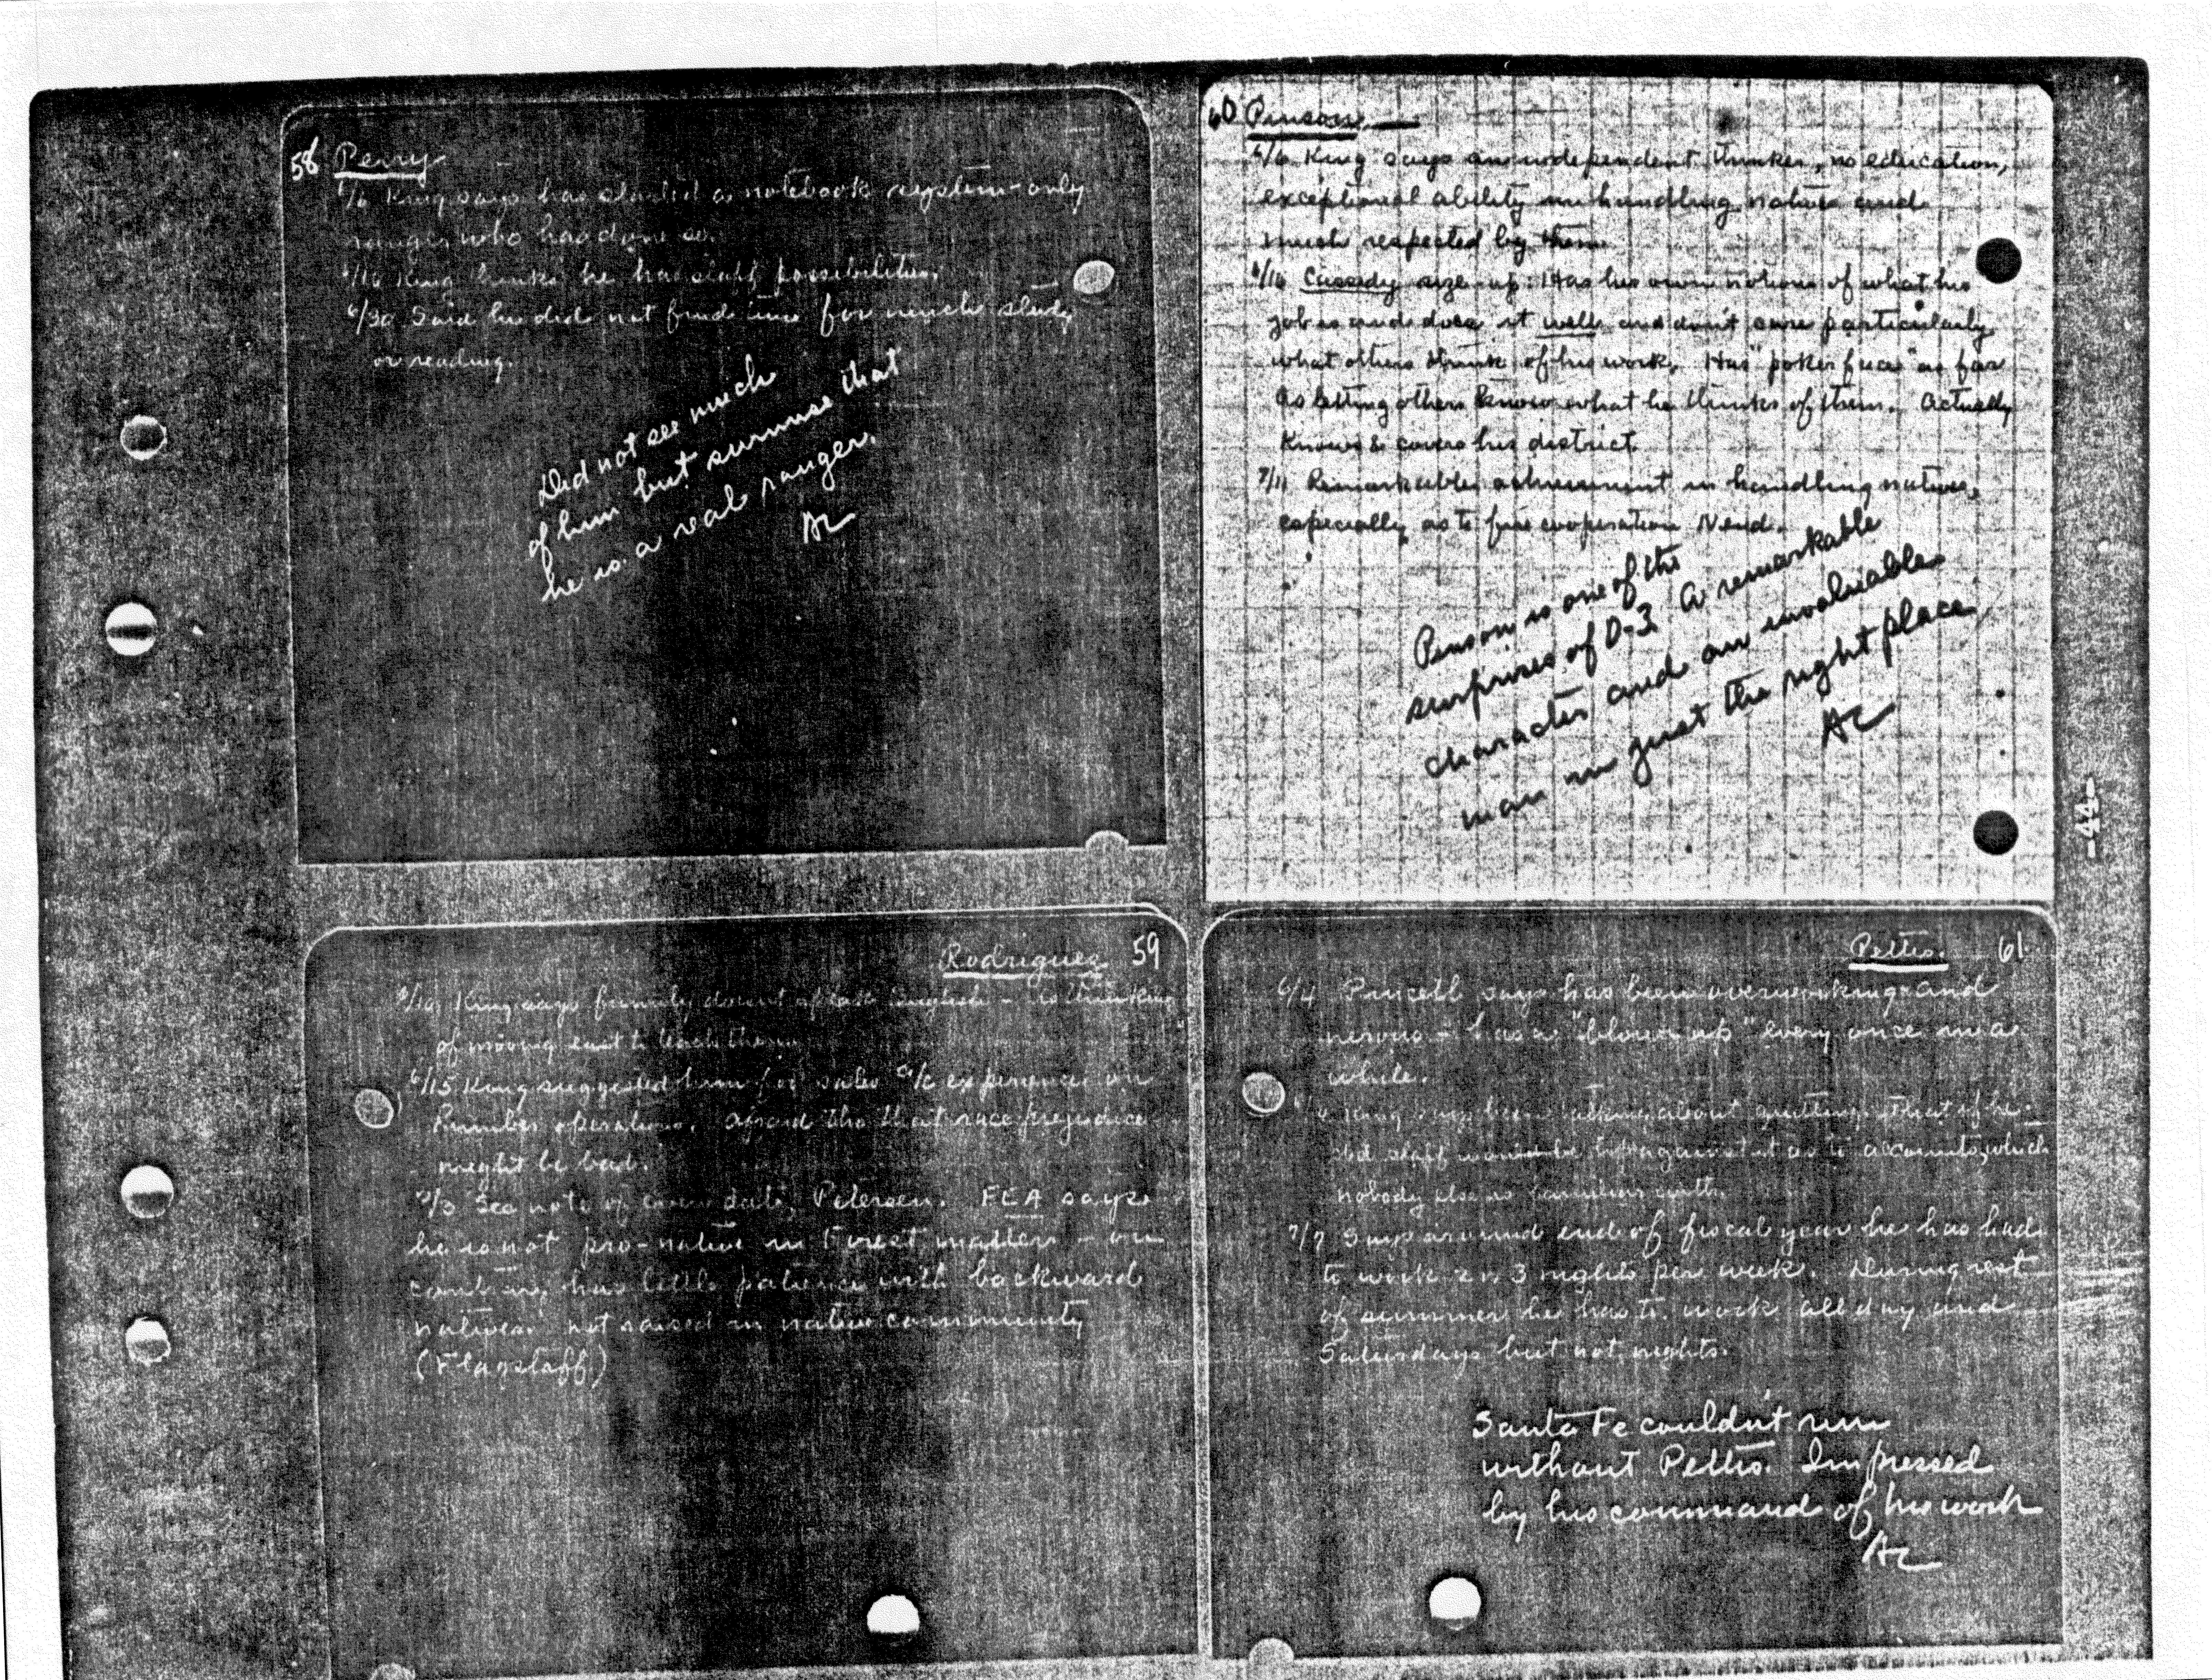 58 Perry
6/6 King says has started a notebook system - only
ranger who has done so.
6/16 King thinks he has staff possibilities.
6/30 Said he did not find time for much study
or reading.
Did not see much
of him but surmise that
he is a real ranger.
AL
60 Pinson
6/6 King says an independent thinker, no education,
exceptional ability in handling natives and
much respected by them.
6/16 Cassedy size up: Has his own notions of what his
job is and does it well and don't care particularly
what others think of his work. Has "poker face" as far
as letting others know what he thinks of them. Actually
knows & covers his district.
7/11 Remarkable achievement in handling natives,
especially as to fire cooperation
Pinson is one of the
surprises of D-3. A remarkable
character and an invaluable
man in just the right place
AL
-44-
Rodriguez 59
King says family doesn't speak English - is thinking
of moving east to teach them.
6/15 King suggested him for sales experience on
operations. Afraid tho that race prejudice
might be bad.
See note of even date, Petersen. FCA says
he is not pro-native in Forest matters - on
contrary has little patience with backward
natives. not raised in native community
(Flagstaff)
Pettis. 61
6/4 says has been overworking and
nervous - has a "blow up" every once in a
while.
King says been talking about quitting. That if he
did staff would be up against it as to accounts, which
nobody else is familiar with.
7/7 Says around end of fiscal year he has had
to work 2 or 3 nights per week. During rest
of summer he has to work all day and
Saturdays but not nights.
Santa Fe couldn't run
without Pettis. Impressed
by his command of his work
AL